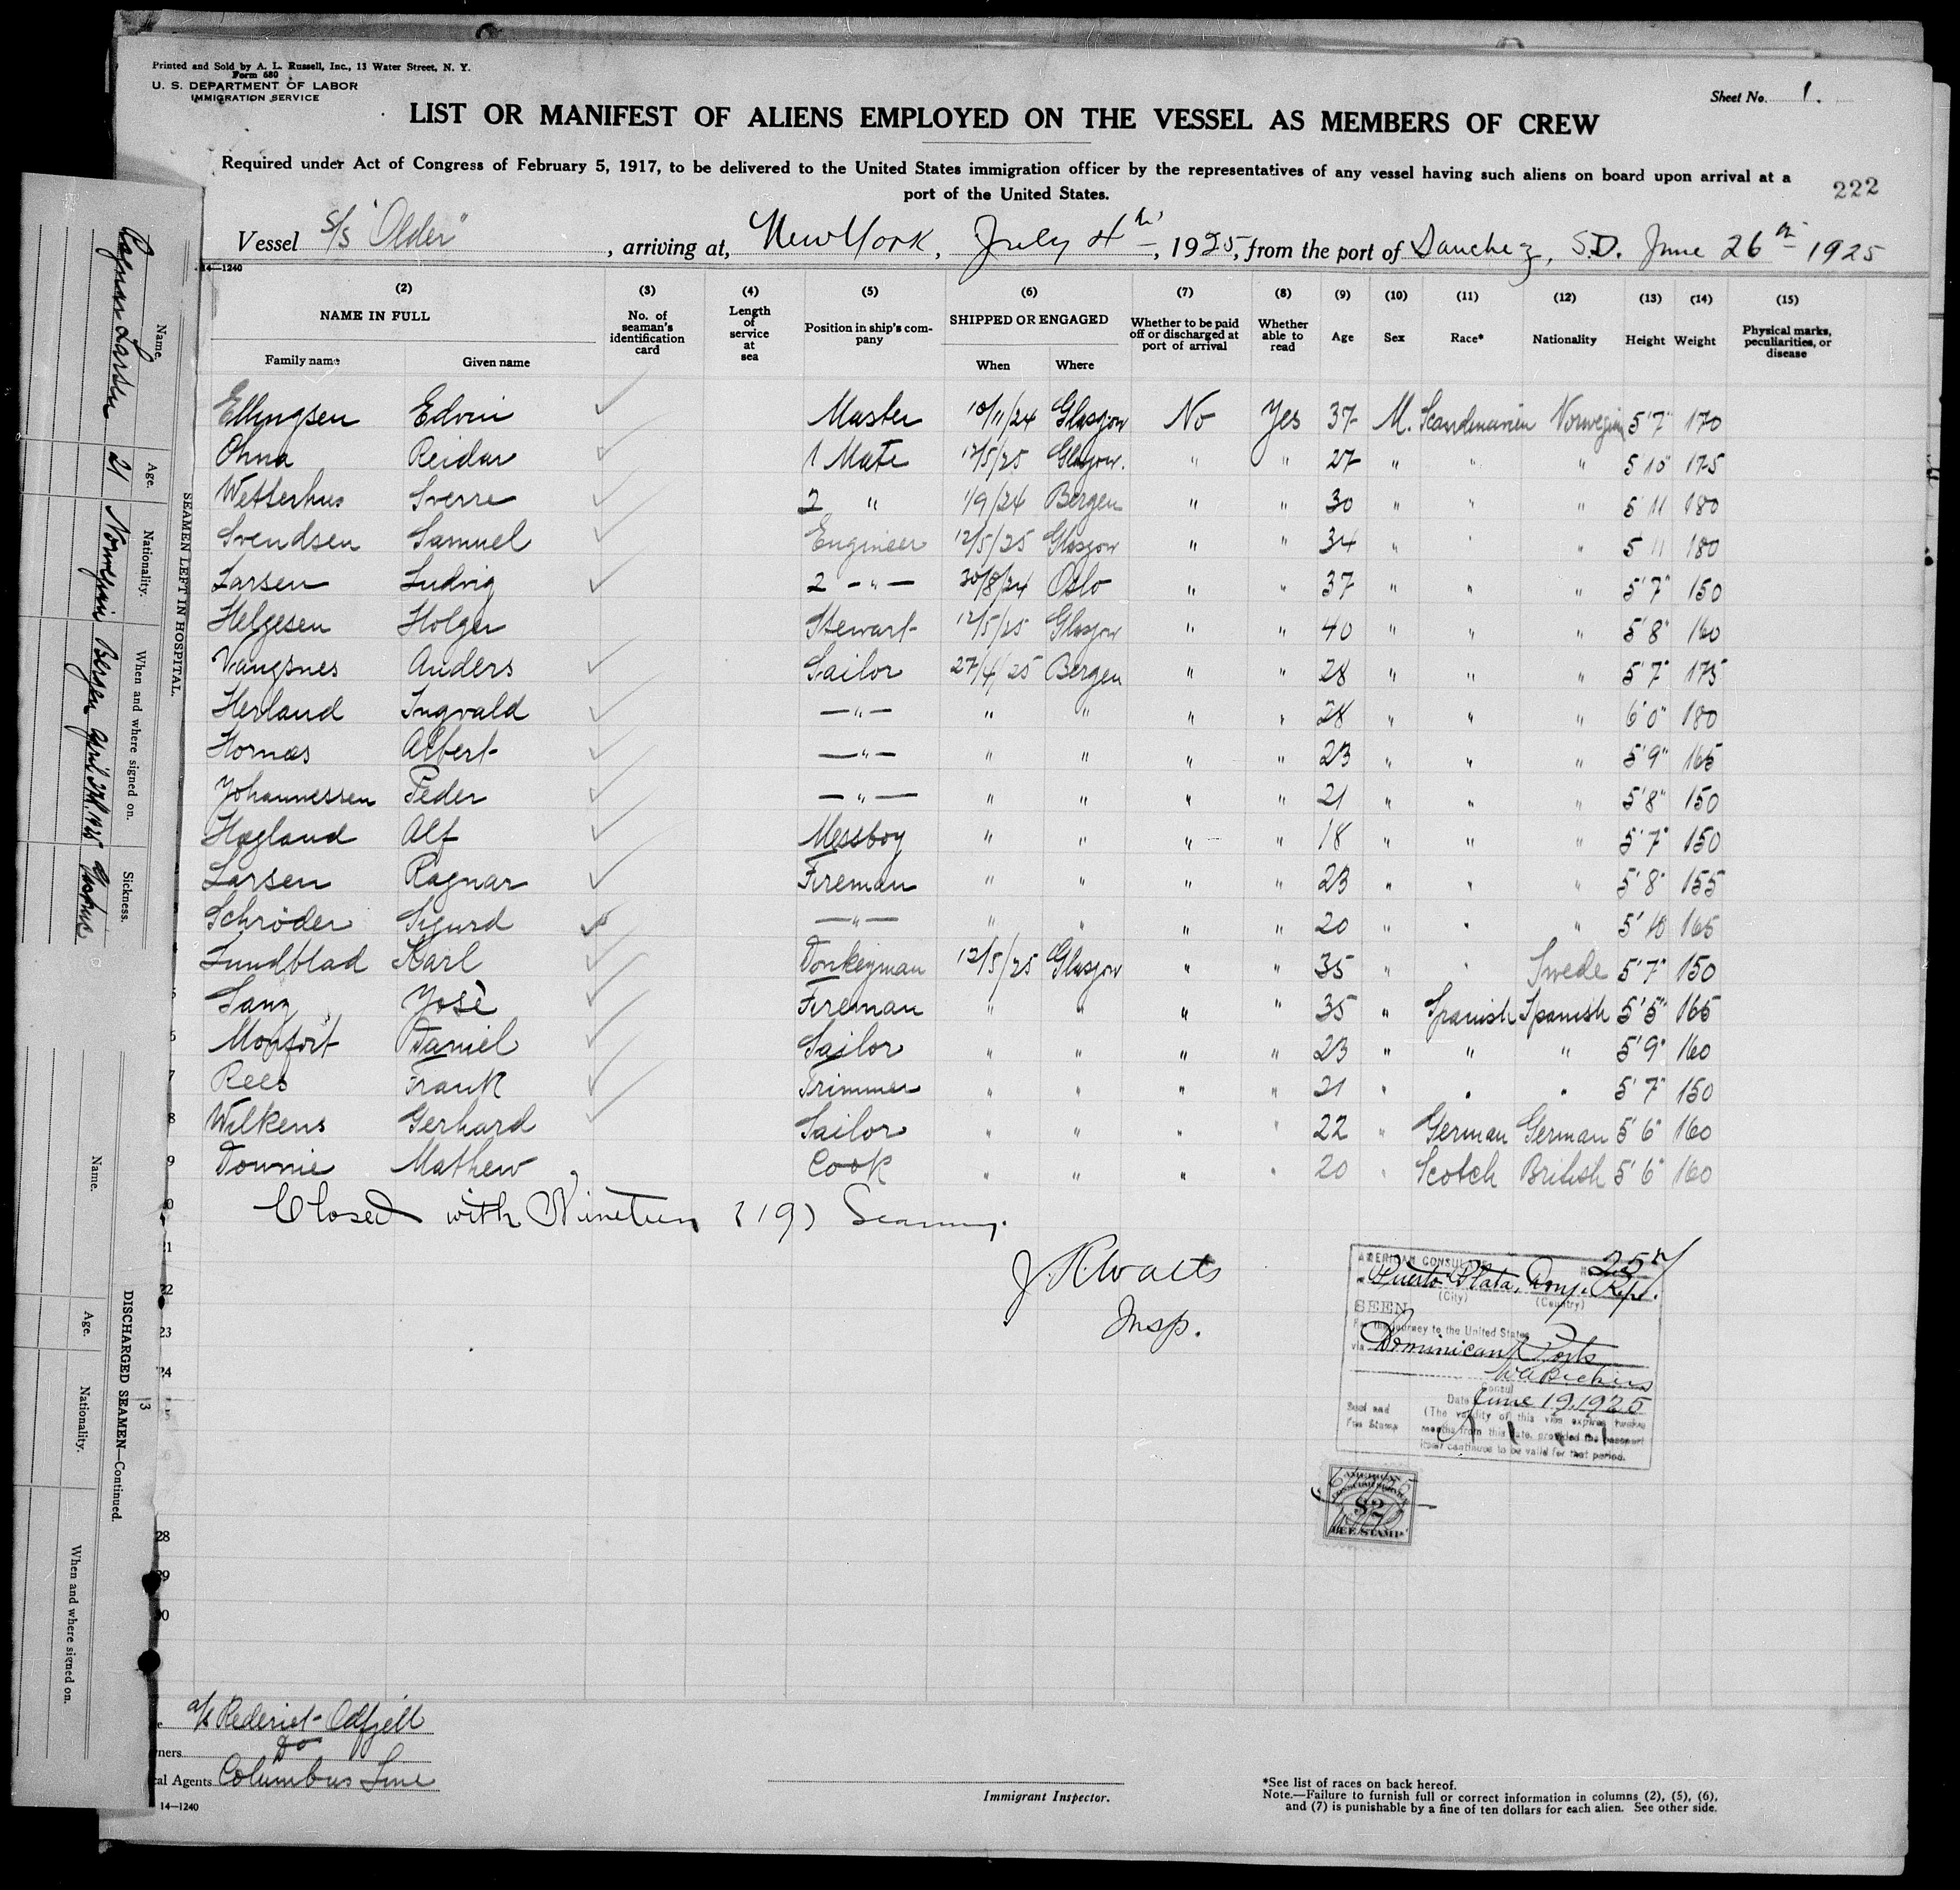 Printed and Sold by A. L. Russell, Inc., 13 Water Street, N. Y.
Form 680
U. S. DEPARTMENT OF LABOR
IMMIGRATION SERVICE
Sheet No. 1.
LIST OR MANIFEST OF ALIENS EMPLOYED ON THE VESSEL AS MEMBERS OF CREW
Required under Act of Congress of February 5, 1917, to be delivered to the United States immigration officer by the representatives of any vessel having such aliens on board upon arrival at a
port of the United States.
222
Vessel S/S "Older", arriving at, New York, July 4th, 1925, from the port of Sanchez, S.D. June 26th 1925
14—1240
(2) (3) (4) (5) (6) (7) (8) (9) (10) (11) (12) (13) (14) (15)
NAME IN FULL No. of seaman's identification card Length of service at sea Position in ship's company SHIPPED OR ENGAGED Whether to be paid off or discharged at port of arrival Whether able to read Age Sex Race* Nationality Height Weight Physical marks, peculiarities, or disease
Family name Given name When Where
Ellingsen Edvin Master 10/11/24 Glasgow No Yes 37 M. Scandinavien Norwegian 5'7" 170
Ohna Reidar 1 Mate 12/5/25 Glasgow. " " 27 " " " 5'10" 175
Wetterhus Sverre 2 " 1/9/24 Bergen " " 30 " " " 5 11 180
Svendsen Samuel Engineer 12/5/25 Glasgow " " 34 " " " 5 11 180
Larsen Ludvig 2 —"— 30/8/24 Oslo " " 37 " " " 5'7" 150
Helgesen Holger Stewart 12/5/25 Glasgow " " 40 " " " 5'8" 160
Vangsnes Anders Sailor 27/4/25 Bergen " " 28 " " " 5'7" 175
Herland Ingvald —"— " " " " 28 " " " 6'0" 180
Hornæs Albert —"— " " " " 23 " " " 5'9" 165
Johannessen Peder —"— " " " " 21 " " " 5'8" 150
Hagland Alf Messboy " " " " 18 " " " 5'7" 150
Larsen Ragnar Fireman " " " " 23 " " " 5'8" 155
Schröder Sigurd —"— " " " " 20 " " " 5'10 165
Lundblad Karl Donkeyman 12/5/25 Glasgow " " 35 " " Swede 5'7" 150
Sanz José Fireman " " " " 35 " Spanish Spanish 5'5" 165
Monfort Daniel Sailor " " " " 23 " " " 5'9" 160
Rees Frank Trimmer " " " " 21 " " " 5'7" 150
Wilkens Gerhard Sailor " " " " 22 " German German 5'6" 160
Downie Mathew Cook " " " " 20 " Scotch British 5'6" 160
Closed with Nineteen (19) Seamen.
J. R. Watts
Insp.
AMERICAN CONSULATE
Puerto Plata, Dom. Repu.
(City) (Country)
SEEN
For the journey to the United States
via Dominican Ports
W A Bickers
Consul
Date June 19, 1925
(The validity of this visa expires twelve
months from this date, provided the passport
itself continues to be valid for that period.
Seal and
Fee Stamp
AMERICAN
CONSULAR SERVICE
$2
FEE STAMP
21
22
23
24
28
29
30
a/s Rederiet Odfjell
Do
Local Agents Columbus Line
14—1240
Immigrant Inspector.
*See list of races on back hereof.
Note.—Failure to furnish full or correct information in columns (2), (5), (6),
and (7) is punishable by a fine of ten dollars for each alien. See other side.
SEAMEN LEFT IN HOSPITAL.
Name. Age. Nationality. When and where signed on. Sickness.
Ragnar Larsen 21 Norwegian Bergen April 27th 1925
DISCHARGED SEAMEN—Continued.
Name. Age. Nationality. When and where signed on.